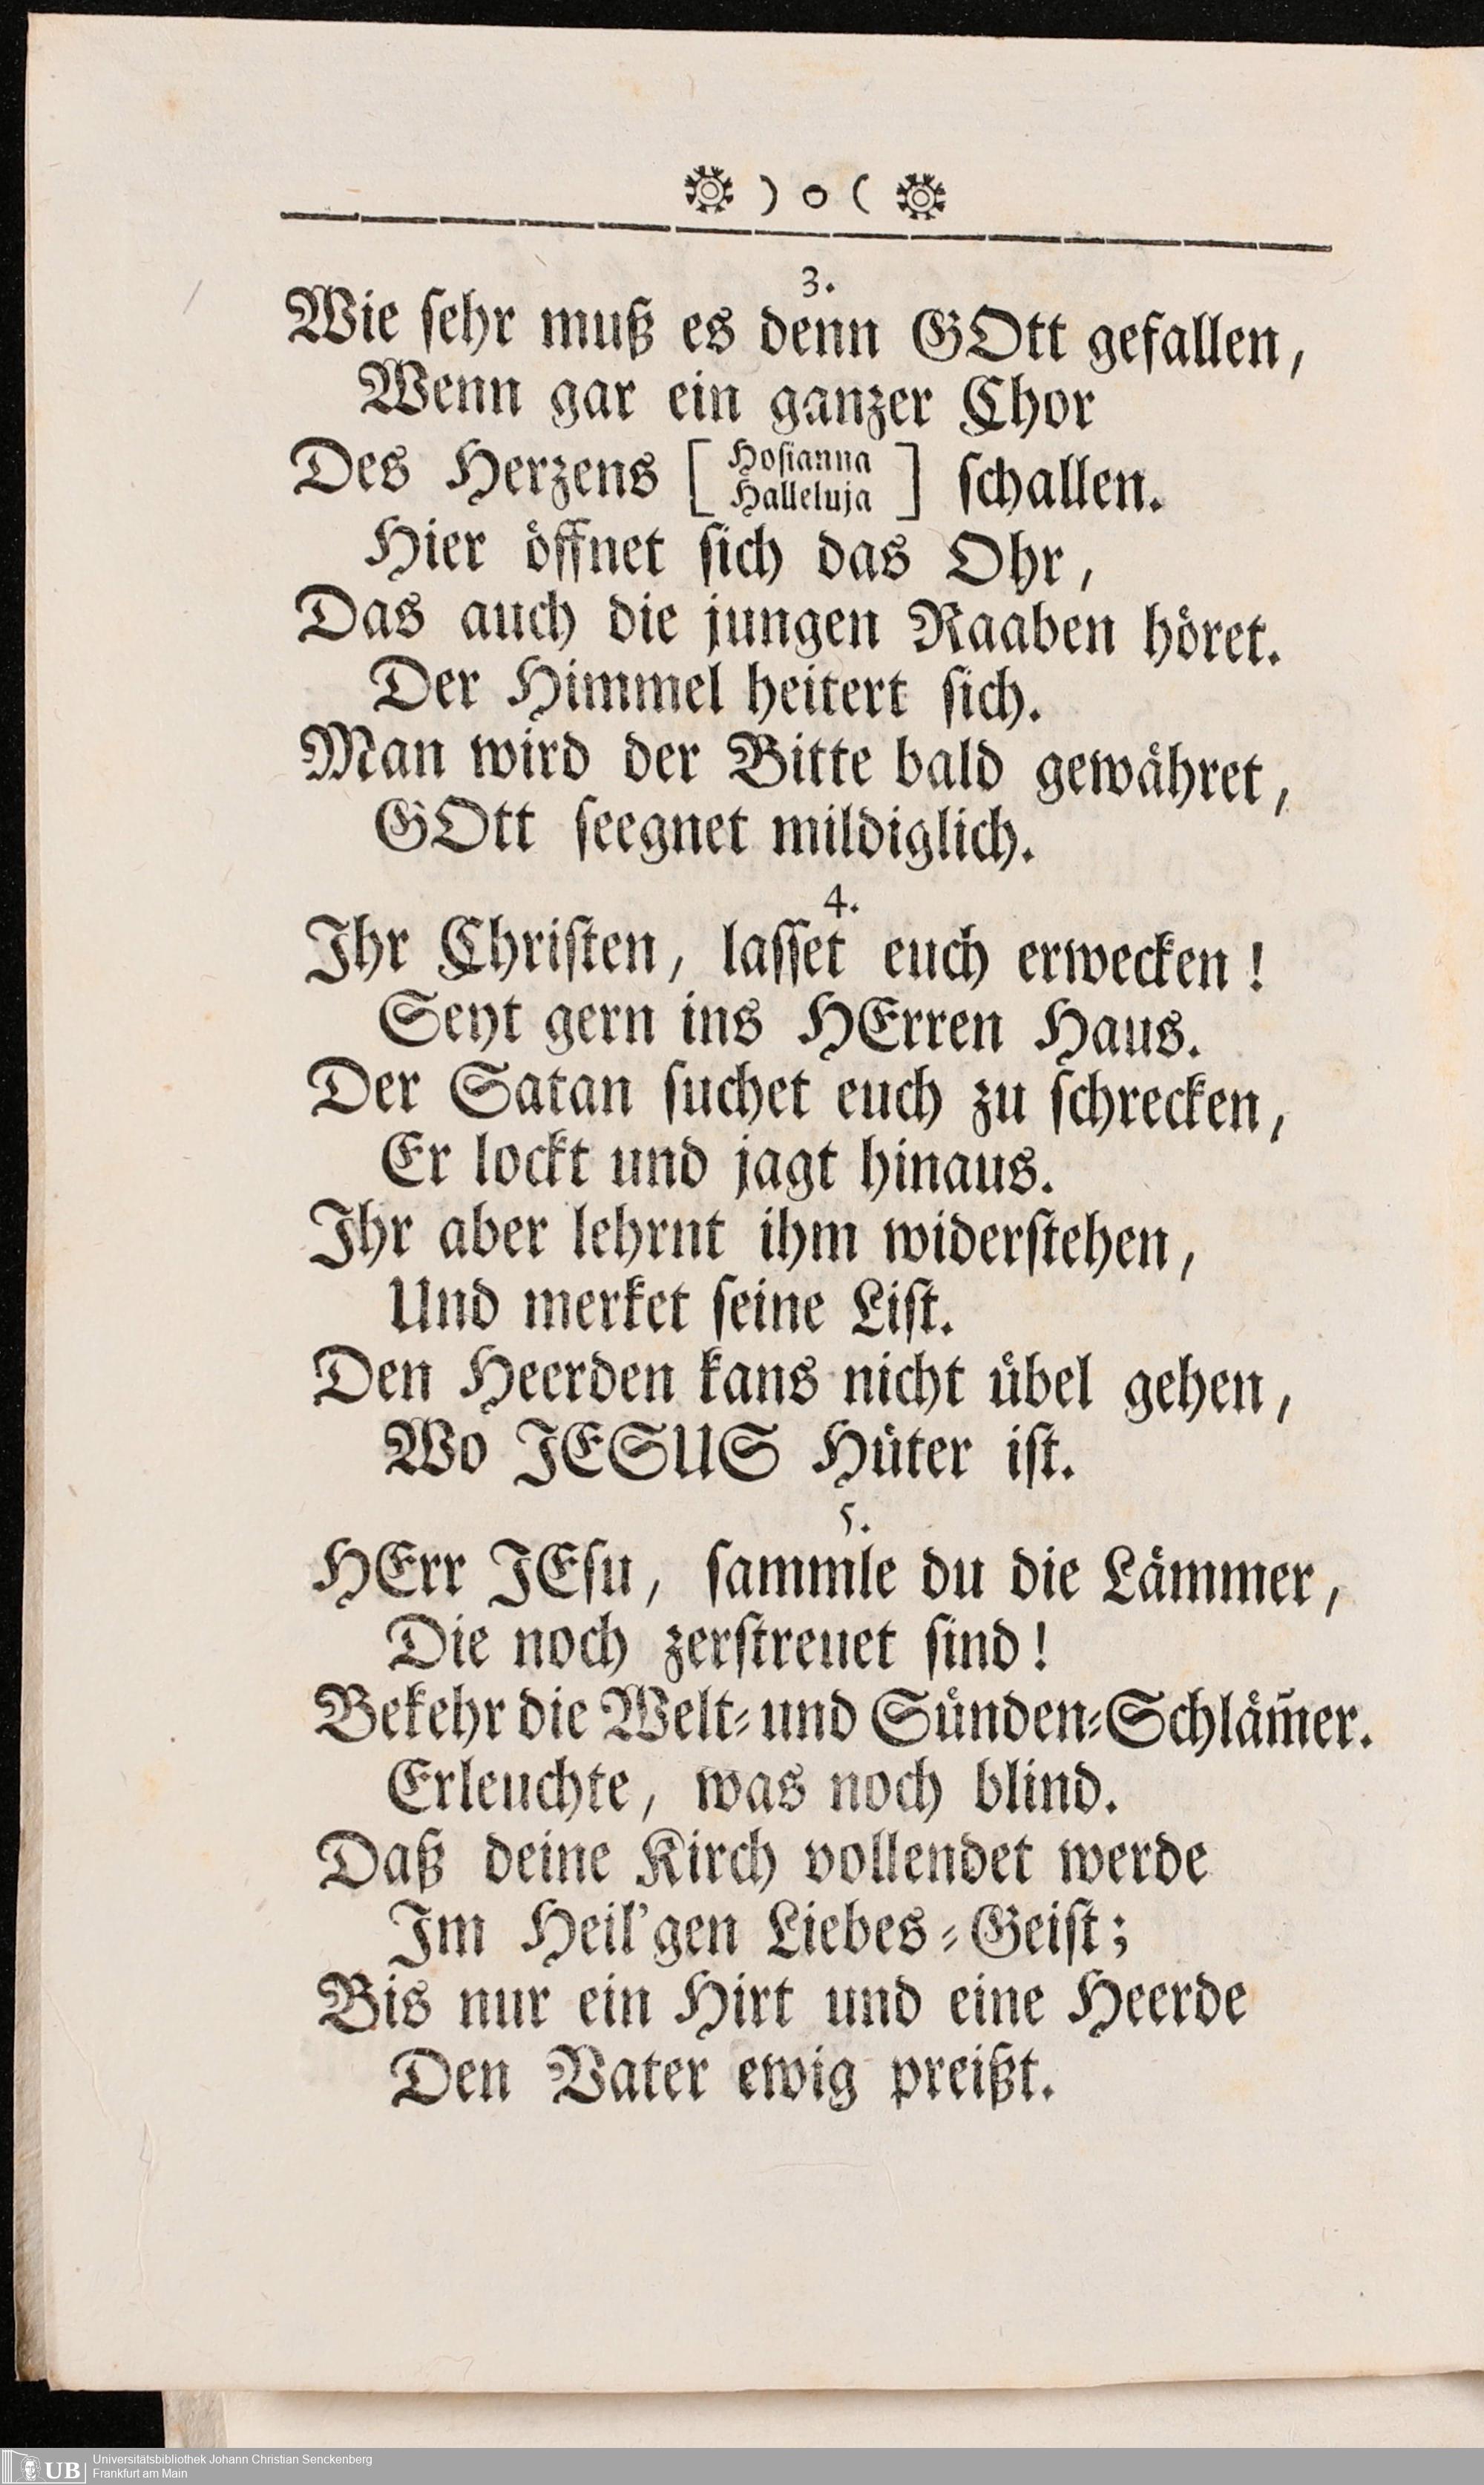 ) o (
3.
Wie ſehr muß es denn GOtt gefallen,
Wenn gar ein ganzer Chor
Des Herzens [ Hoſianna Halleluja ] ſchallen.
Hier öffnet ſich das Ohr,
Das auch die jungen Raaben höret.
Der Himmel heitert ſich.
Man wird der Bitte bald gewähret,
GOtt ſeegnet mildiglich.
4.
Ihr Chriſten, laſſet euch erwecken!
Seyt gern ins HErren Haus.
Der Satan ſuchet euch zu ſchrecken,
Er lockt und jagt hinaus.
Ihr aber lehrnt ihm widerſtehen,
Und merket ſeine Liſt.
Den Heerden kans nicht übel gehen,
Wo JESUS Hüter iſt.
5.
HErr JEſu, ſammle du die Lämmer,
Die noch zerſtreuet ſind!
Bekehr die Welt⸗ und Sünden⸗Schläm̃er.
Erleuchte, was noch blind.
Daß deine Kirch vollendet werde
Im Heil'gen Liebes⸗Geiſt;
Bis nur ein Hirt und eine Heerde
Den Vater ewig preißt.
UB Universitätsbibliothek Johann Christian Senckenberg
Frankfurt am Main